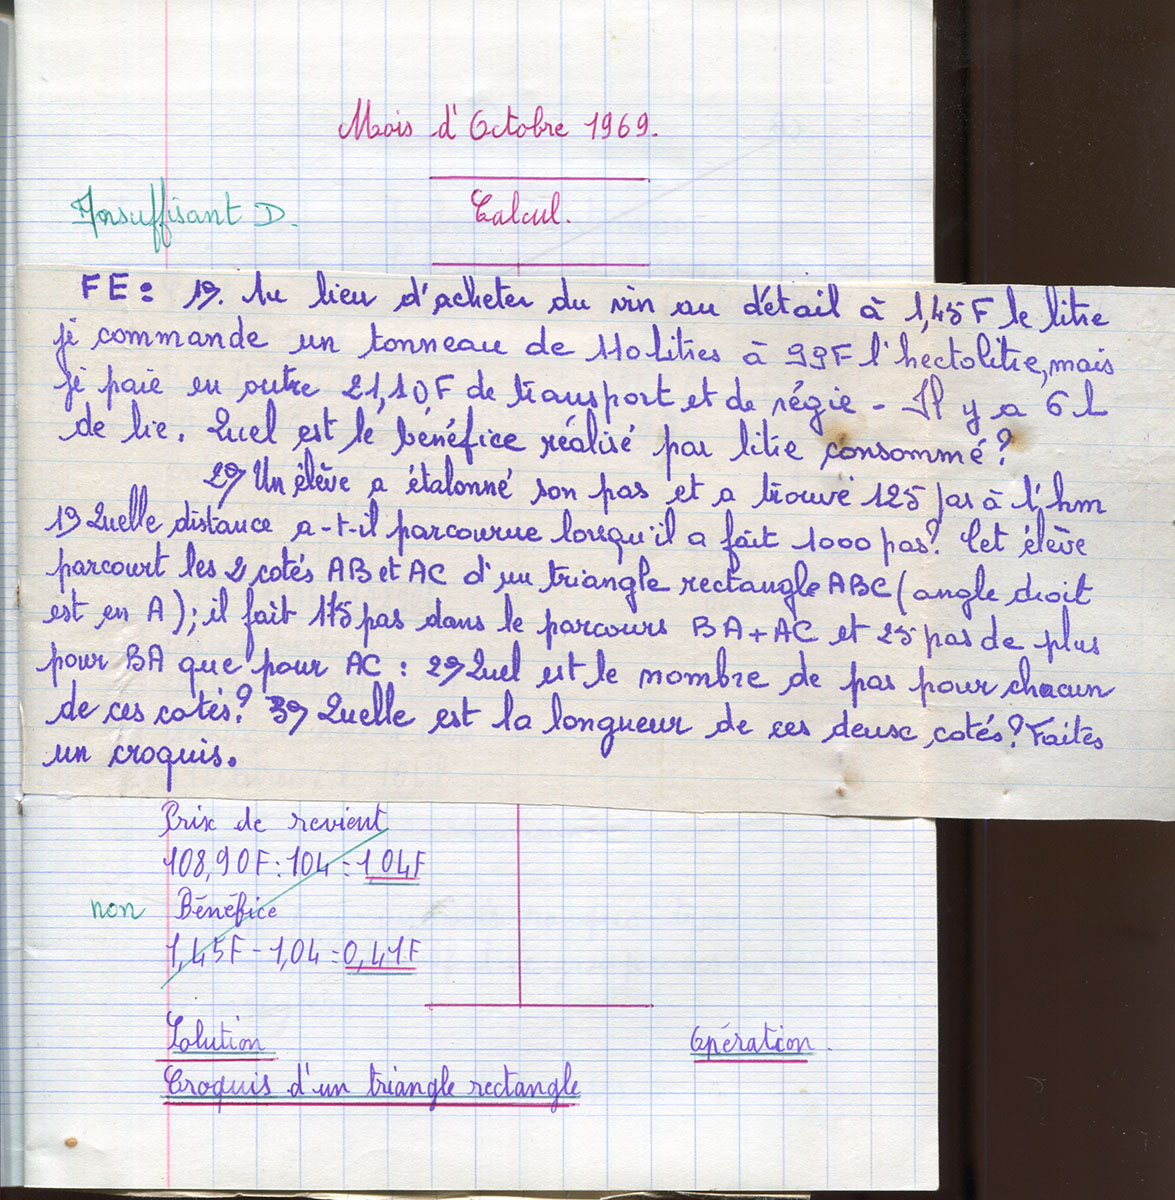 Mois d'Octobre 1969.
Insuffisant D.
Calcul.
FE: 1°). Au lieu d'acheter du vin au détail à 1,45F le litre
je commande un tonneau de 110 litres à 99F l'hectolitre, mais
je paie en outre 21,10F de transport et de régie - Il y a 6 L
de lie. Quel est le bénéfice réalisé par litre consommé?
2°) Un élève a étalonné son pas et a trouvé 125 pas à l'hm
1°) Quelle distance a-t-il parcourue lorsqu'il a fait 1000 pas? Cet élève
parcourt les 2 cotés AB et AC d'un triangle rectangle ABC (angle droit
est en A); il fait 175 pas dans le parcours BA+AC et 25 pas de plus
pour BA que pour AC : 2°) Quel est le nombre de pas pour chacun
de ces cotés? 3°) Quelle est la longueur de ces deux cotés? Faites
un croquis.
Prix de revient
108,90F : 104 = 1,04F
non Bénéfice
1,45F - 1,04 = 0,41F
Solution
Opération.
Croquis d'un triangle rectangle